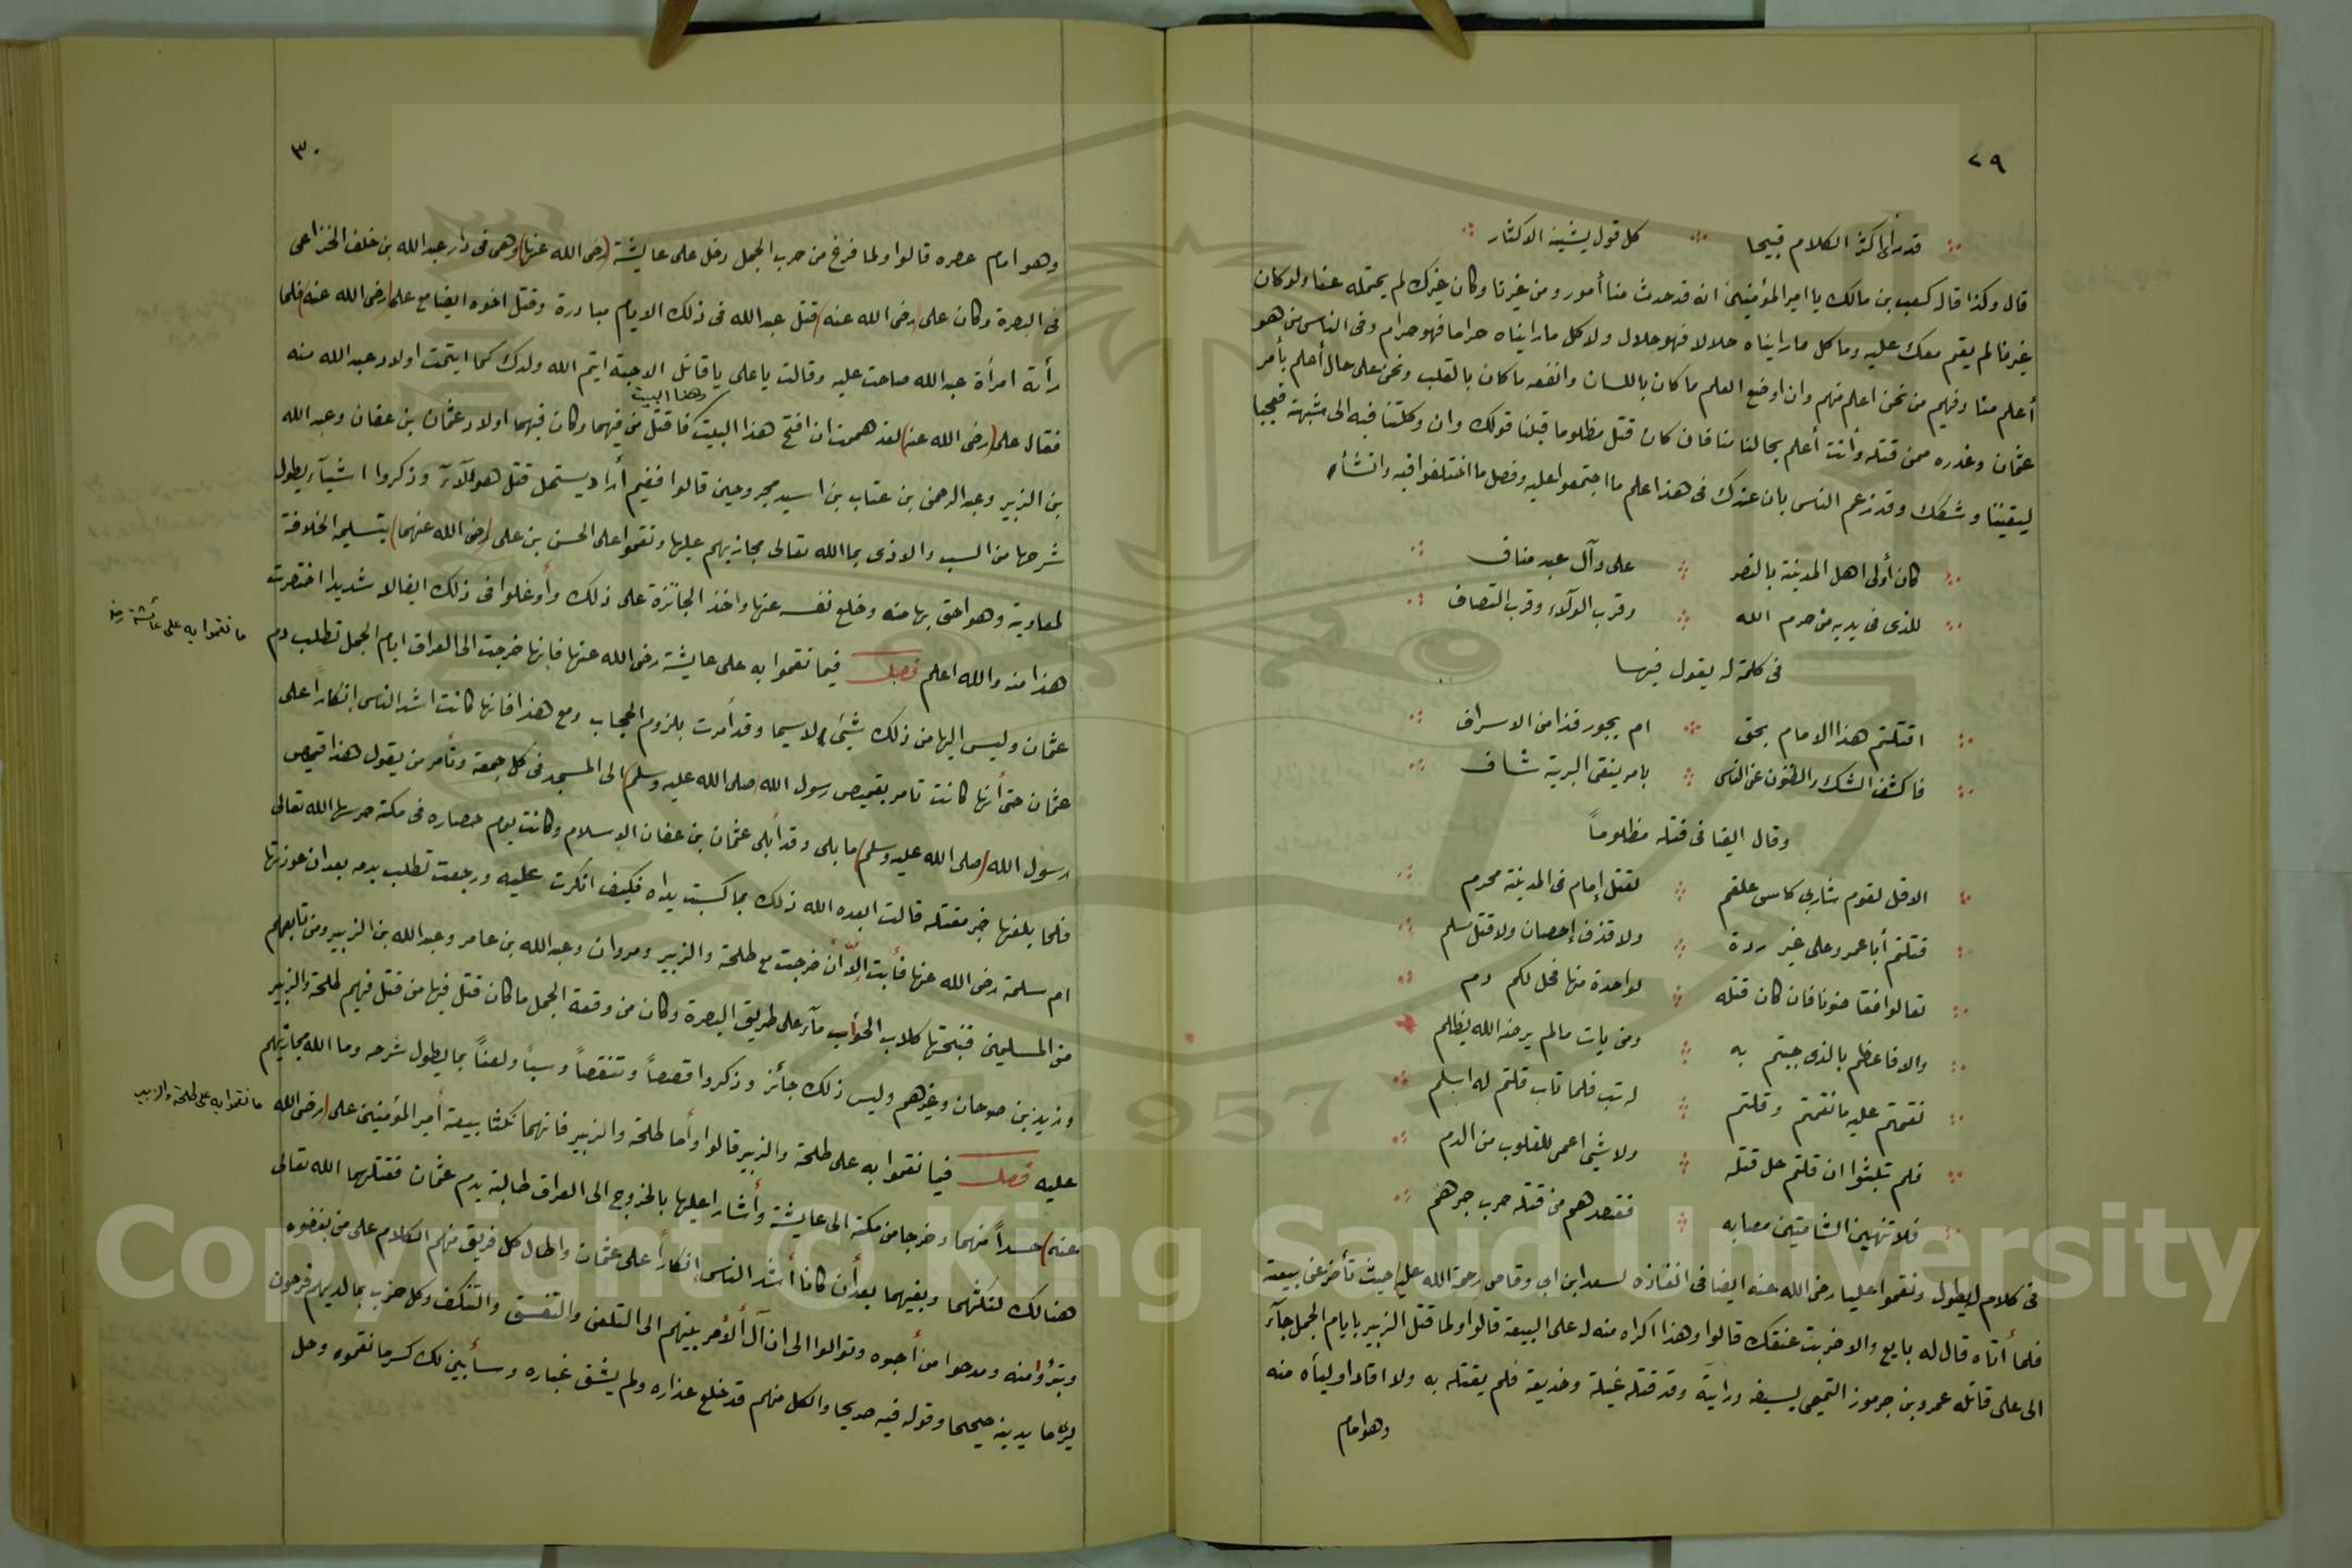 ٢٩
قد أكثر الكلام قبيحا كل قول يشينه الاكثار
قال وكذا قال كعب بن مالك يا امير المؤمنين انه قد حدث منا أمور ومن غيرنا وكان غيرك لم يحتمله عنا ولو كان
غيرنا لم يقم معك عليه وما كل ما رايناه حلالا فهو حلال ولا كل ما رايناه حراما فهو حرام وفى الناس من هو
أعلم منا وفيهم من نحن اعلم منهم وان اوضع العلم ما كان باللسان وانفعه ما كان بالقلب ونحن على حال أعلم بأمر
عثمان وغدره ممن قتله وأنت أعلم بحالنا منا فان كان قتل مظلوما قبلنا قولك وان وكلتنا فيه الى شبهة فعجبا
ليقيننا وشكك وقد زعم الناس بان عندك فى هذا علم ما اجتمعوا عليه وفصل ما اختلفوا فيه وانشأ
كان أولى اهل المدينة بالنصر على وآل عبد مناف
للذى فى يديه من حرم الله وقرب الولآء وقرب التصاف
فى كلمة له يقول فيها
اقتلتم هذا الامام بحق ام بجور فذا من الاسراف
فاكشف الشك والظنون عن الناس بامر ينقى البرية شاف
وقال ايضا فى قتله مظلوماً
الا قل لقوم شاربى كاس علقم لقتل إمام فى المدينة محرم
قتلتم أبا عمرو على غير ردة ولا قذف إحصان ولا قتل مسلم
تعالوا فقاضونا فان كان قتله لواحدة منها فحل لكم دم
والا فاعظم بالذى جيتم به ومن يات مالم يرضه الله يظلم
نقمتم عليه ما نقمتم وقلتم له تب فلما تاب قلتم له اسلم
فلم تلبثوا ان قلتم حل قتله ولا شئ اعمى للقلوب من الدم
فلا تنهين الشامتين مصابه فقصدهم من قتله حرب جرهم
فى كلام يطول ونقموا عليا رضى الله عنه ايضا فى انفاذه لسعد ابن ابى وقاص رحمة الله عليه حيث تأخر عن بيعته
فلما أتاه قال له بايع والا ضربت عنقك قالوا وهذا اكراه منه له على البيعة قالوا ولما قتل الزبير بايام الجمل جآء
الى على قاتله عمرو بن جرموز التميمى بسيفه ورايته وقد قتله غيلة وخديعة فلم يقتله به ولا اقاد اوليآه منه
وهو امام
٣٠
وهو امام عصره قالوا ولما فرغ من حرب الجمل دخل على عايشة (رضى الله عنها) وهى فى دار عبد الله بن خلف الخزاعى
فى البصرة وكان على (رضى الله عنه) قتل عبد الله فى ذلك الايام مبادرة وقتل اخوه ايضا مع على (رضى الله عنه) فلما
رأته امرأة عبد الله صاحت عليه وقالت يا على يا قاتل الاحبة ايتم الله ولدك كما ايتمت اولاد عبد الله منه
وهذا البيت
فقال على (رضى الله عنه) لقد هممت ان افتح هذا البيت فاقتل من فيهما وكان فيهما اولاد عثمان بن عفان وعبد الله
بن الزبير وعبد الرحمن بن عتاب بن اسيد مجروحين قالوا ففيم أراد يستحل قتل هولآء وذكروا اشيآء يطول
شرحها من السب والاذى بما الله تعالى مجازيهم عليها ونقموا على الحسن بن على (رضى الله عنهما) بتسليمه الخلافة
لمعاوية وهو احق بها منه وخلع نفسه عنها واخذ الجائزة على ذلك وأوغلوا فى ذلك ايغالا شديدا اختصرت
هذا منه والله اعلم فصل فيما نقموا به على عايشة رضى الله عنها فانها خرجت الى العراق ايام الجمل تطلب دم
عثمان وليس اليها من ذلك شئ لاسيما وقد أمرت بلزوم الحجاب ومع هذا فانها كانت اشد الناس إنكاراً على
عثمان حتى أنها كانت تامر بقميص رسول الله (صلى الله عليه وسلم) الى المسجد فى كل جمعة وتأمر من يقول هذا قميص
رسول الله (صلى الله عليه وسلم) ما بلى وقد أبلى عثمان بن عفان الاسلام وكانت يوم حصاره فى مكة حرسها الله تعالى
فلما بلغها خبر مقتله قالت ابعده الله ذلك بما كسبت يداه فكيف انكرت عليه ورجعت تطلب بدمه بعد ان عوذتها
ام سلمة رضى الله عنها فأبت إلّا أن خرجت مع طلحة والزبير ومروان وعبد الله بن عامر وعبد الله بن الزبير ومن تابعهم
من المسلمين فنبحتها كلاب الحوأب مآء على طريق البصرة وكان من وقعة الجمل ما كان قتل فيها من قتل فيهم طلحة والزبير
وزيد بن صوحان وغيرهم وليس ذلك جائز وذكروا قصصاً وتنقصاً وسباً ولعناً بما يطول شرحه وما الله مجازيهم
عليه فصل فيما نقموا به على طلحة والزبير قالوا وأما طلحة والزبير فانهما نكثا بيعة أمير المؤمنين على (رضى الله
عنه) حسداً منهما وخرجا من مكة الى عايشة وأشارا عليها بالخروج الى العراق طالبة بدم عثمان فقتلهما الله تعالى
هنالك لنكثهما وبغيهما بعد أن كانا أشد الناس إنكاراً على عثمان واطال كل فريق منهم الكلام على من بغضوه
وتبرؤا منه ومدحوا من أحبوه وتوالوا الى ان آل الأمر بينهم الى التلعن والتفسق والتكفر وكل حزب بما لديهم فرحون
يرى ما يدينه صحيحا وقوله فيه صريحا والكل منهم قد خلع عذاره ولم يشق غباره وسأبين لك كسر ما نقموه وحل
ما نقموا به على عائشة رضى
ما نقموا به على طلحة والزبير
1957
Copyright © King Saud University